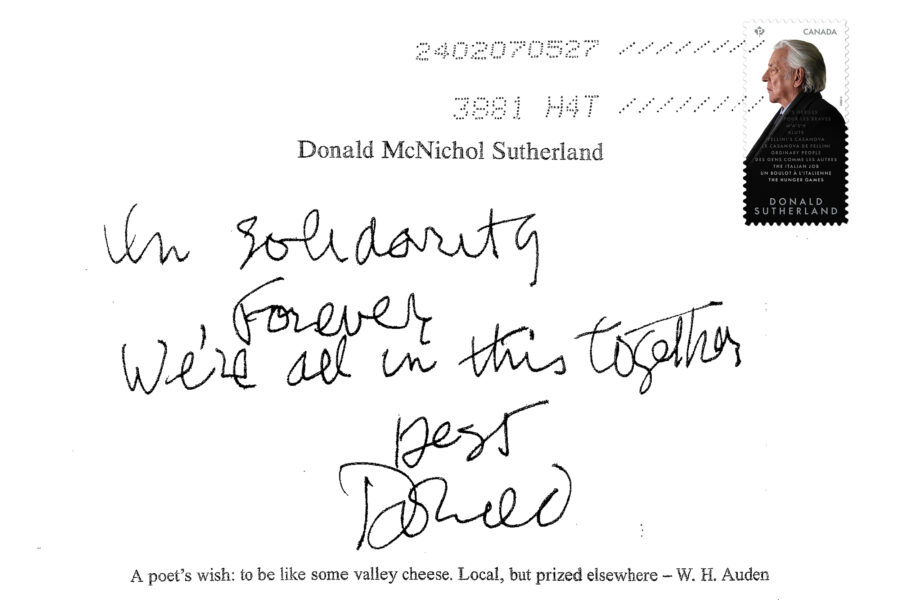 2402070527
3881 H4T
CANADA
POUR LES BRAVES
M*A*S*H
KLUTE
FELLINI'S CASANOVA
LE CASANOVA DE FELLINI
ORDINARY PEOPLE
DES GENS COMME LES AUTRES
THE ITALIAN JOB
UN BOULOT À L'ITALIENNE
THE HUNGER GAMES
DONALD
SUTHERLAND
Donald McNichol Sutherland
In Solidarity
Forever
We're all in this together
Best
Donald
A poet's wish: to be like some valley cheese. Local, but prized elsewhere – W. H. Auden